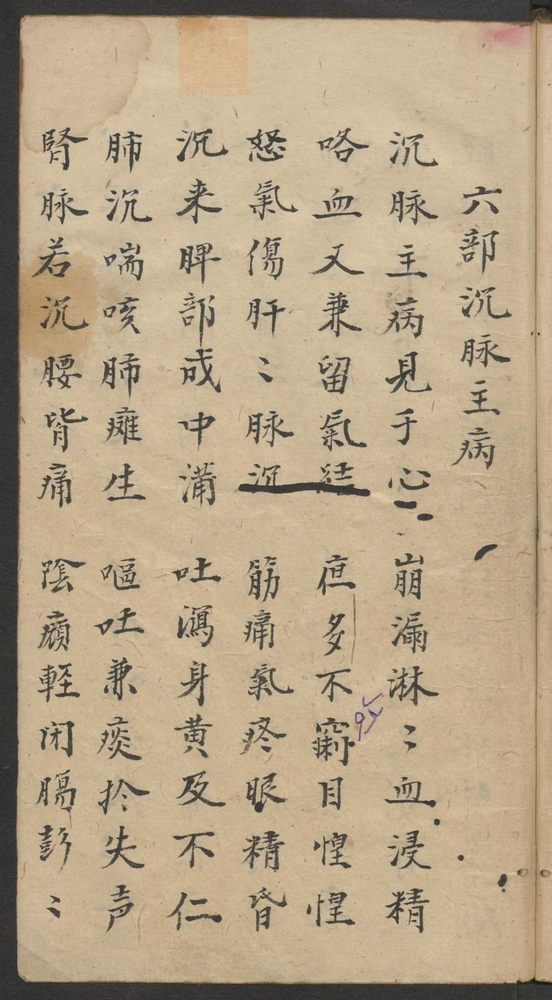 六部沉脉主病
沉脉主病見于心 崩漏淋〻血浸精
咯血又兼留氣結 疸多不寐目惶惶
怒氣傷肝〻脉沉 筋痛氣疼眼精昏
沉来脾部成中满 吐瀉身黄及不仁
肺沉喘咳肺癰生 嘔吐兼痰於失声
腎脉若沉腰背痛 陰㿗軽闭腸彭〻
95